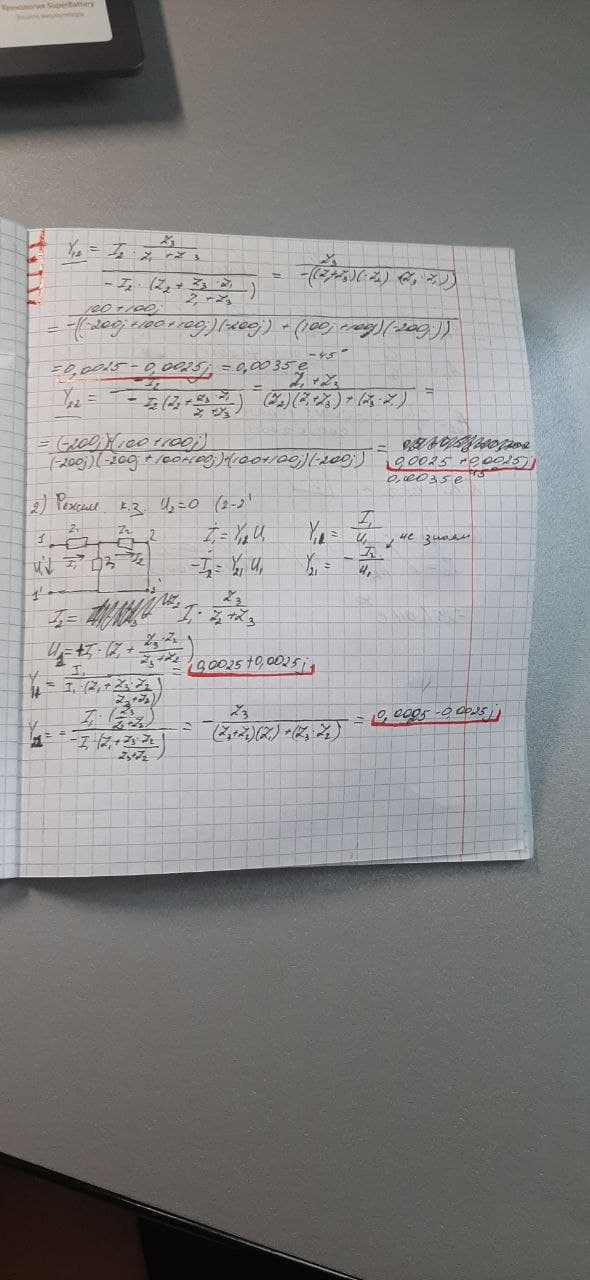 Технология SuperBattery
Y₁₂ = I₂ · Z₃ / (Z₁ + Z₃) / (- I₂ · (Z₂ + Z₃ · Z₁ / (Z₁ + Z₃))) = Z₃ / (-((Z₁+Z₃)(-Z₂) + (Z₃ · Z₁)))
= 100 + 100j / (-((-200j + 100 + 100j)(-200j) + (100j + 100)(-200j)))
= 0,0025 - 0,0025j = 0,0035 e^(-45°)
Y₂₂ = -I₂ / (- I₂ (Z₂ + Z₃ · Z₁ / (Z₁ + Z₃))) = Z₁ + Z₃ / ((Z₂)(Z₁ + Z₃) + (Z₃ · Z₁)) =
= (-200j)(100 + 100j) / ((-200j)(-200j + 100 + 100j) + (100 + 100j)(-200j)) = 0,0025 + 0,0025j
0,0035 e^(45°)
2) Режим к.з. U₂ = 0 (2-2'
Z₁ Z₂ 2
1
U₁ I₁ Z₃ I₂
1' 2'
İ₁ = Y₁₁ U₁ Y₁₁ = I₁ / U₁
не знаем
-İ₂ = Y₂₁ U₁ Y₂₁ = - I₂ / U₁
I₂ = I₁ · Z₃ / (Z₂ + Z₃)
U₁ = +I₁ · (Z₁ + Z₃ · Z₂ / (Z₃ + Z₂))
Y₁₁ = I₁ / (I₁ · (Z₁ + Z₃ · Z₂ / (Z₃ + Z₂))) = 0,0025 + 0,0025j
Y₂₁ = - I₁ · (Z₃ / (Z₂ + Z₃)) / (- I₁ · (Z₁ + Z₃ · Z₂ / (Z₃ + Z₂))) = - Z₃ / ((Z₃ + Z₂)(Z₁) + (Z₃ · Z₂)) = 0,0025 - 0,0025j